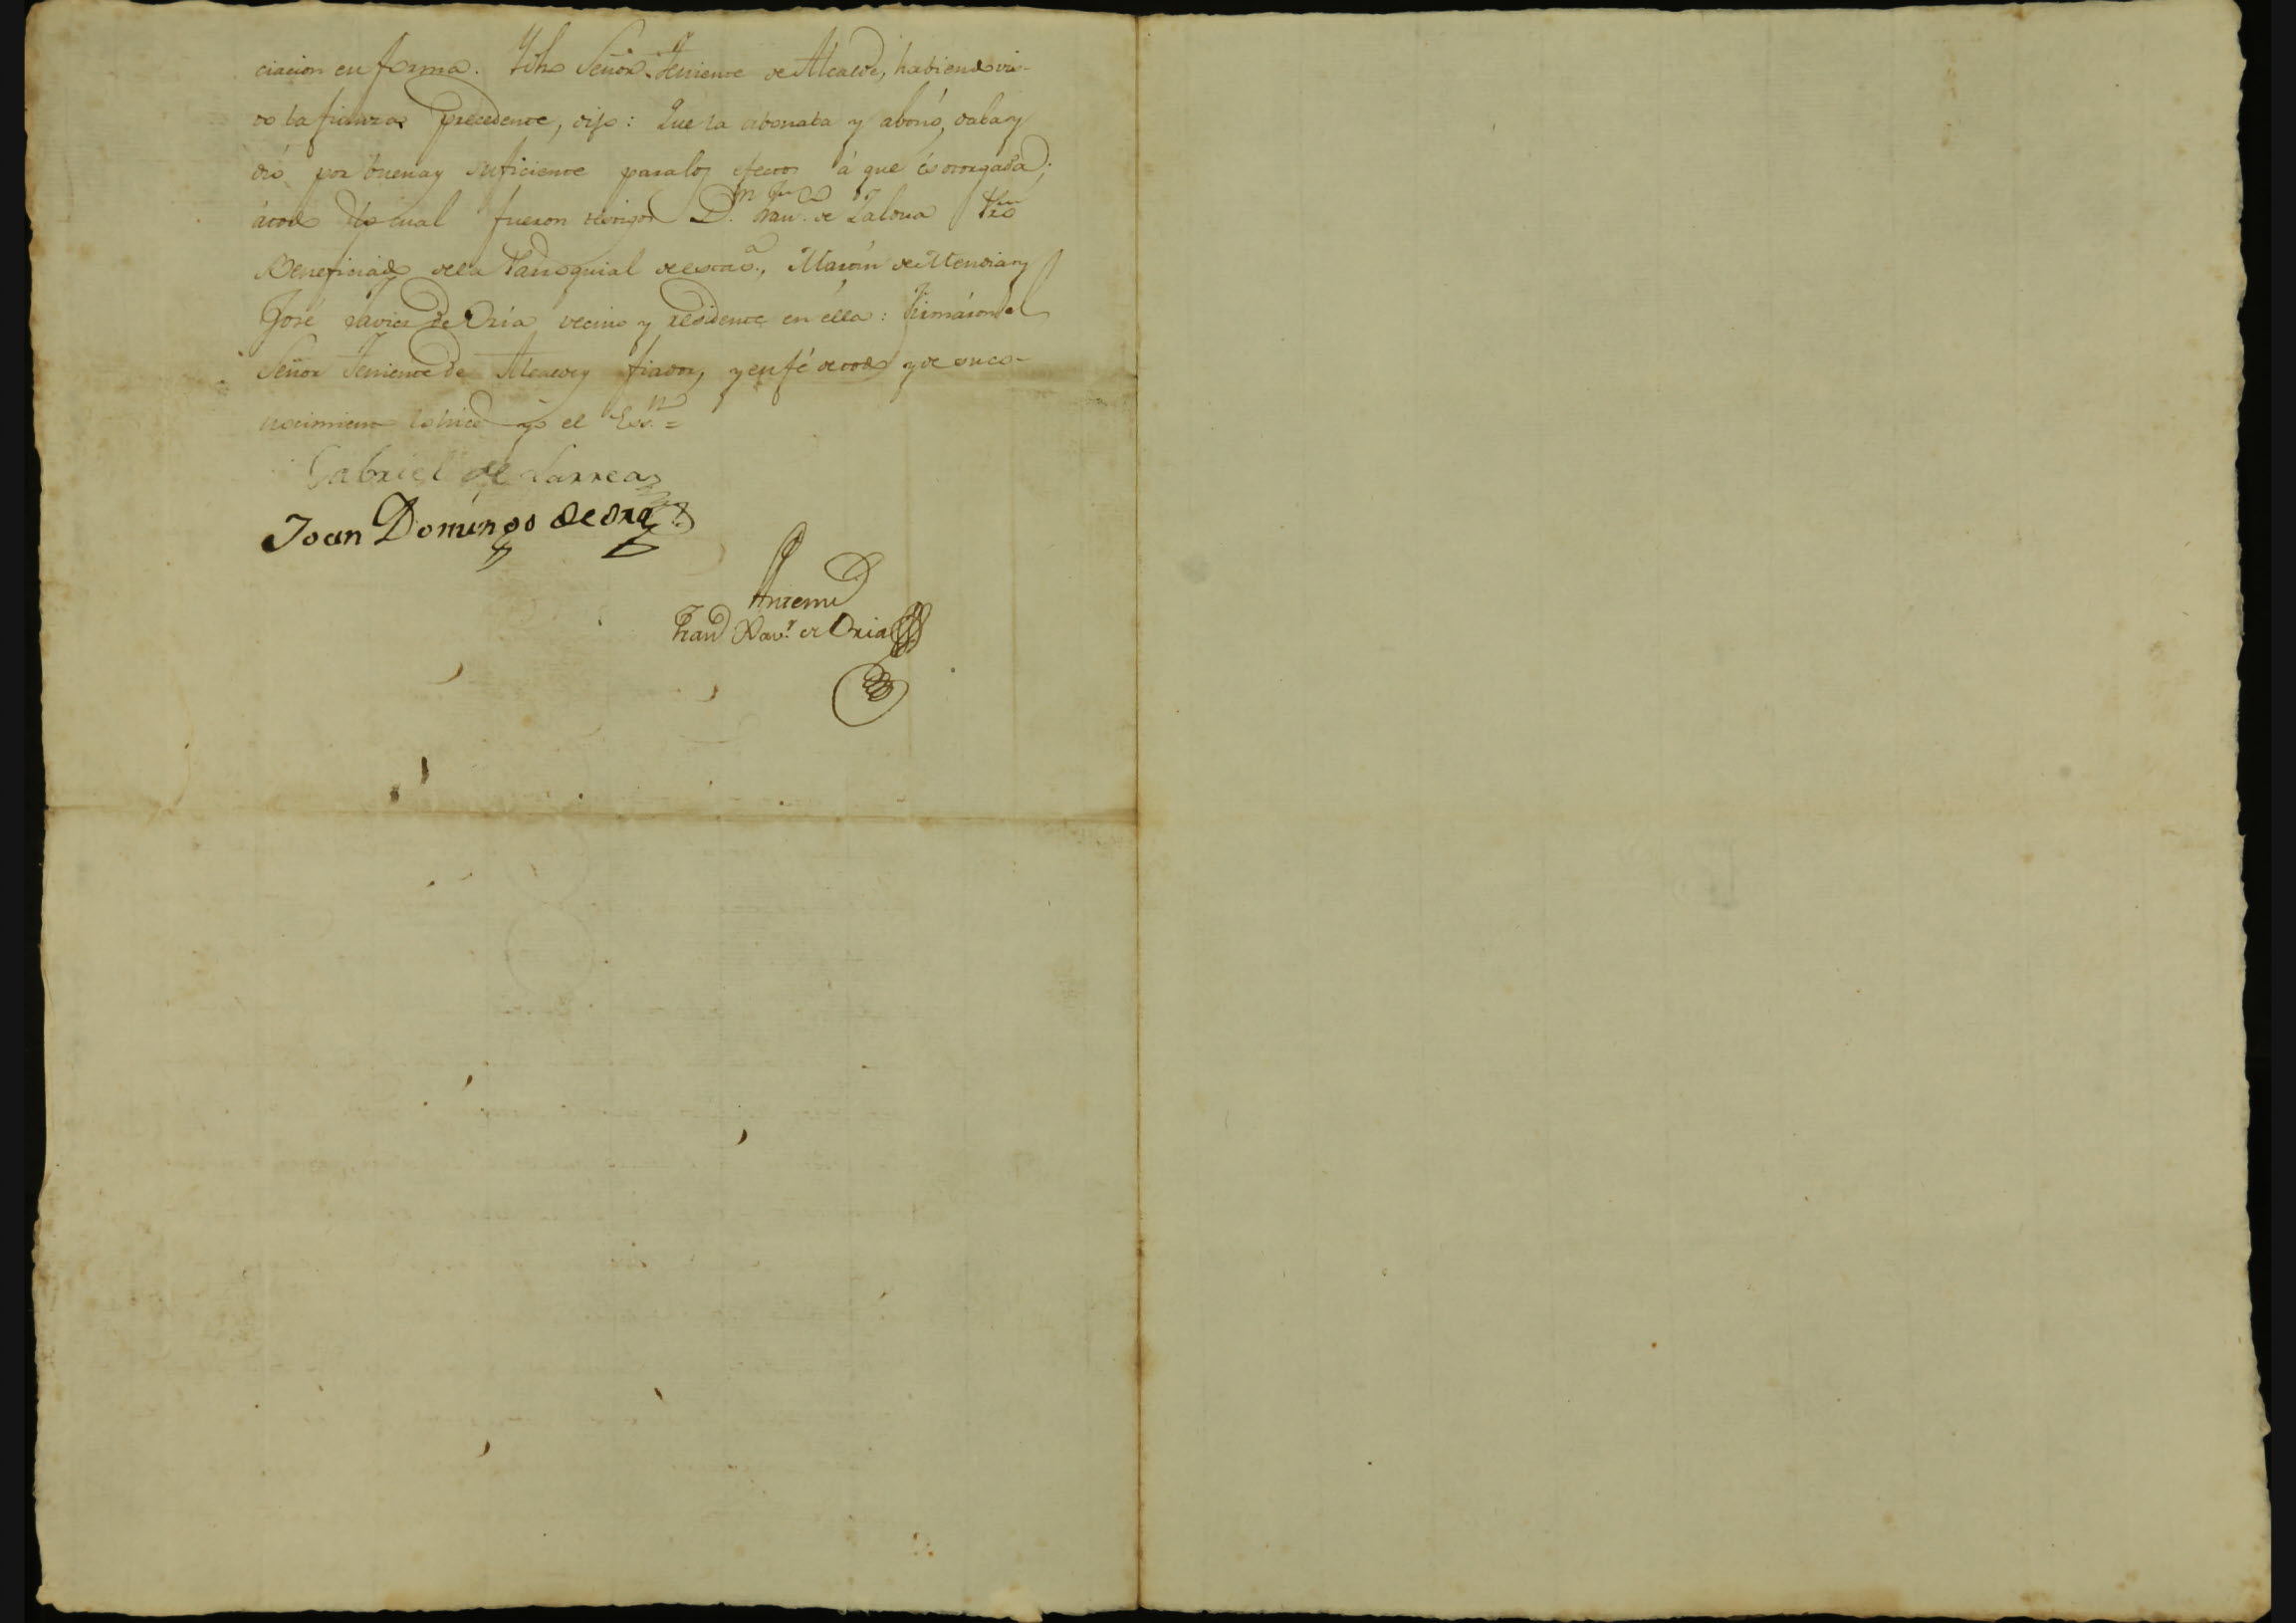 ciacion en forma. Y dho Señor Teniente de Alcalde, habiendo vis-
to la fianza precedente, dijo: Que la abonaba y abonó, daba y
dió por buena y suficiente para los efectos á que és otorgada;
á todo lo cual fueron testigos D.n Fran.co de Zaloua Pro
Beneficiado de la Parroquial de esta v.a, Martin de Mendia y
José Javier de Oria vecino y residente en élla: Firmáron el
Señor Teniente de Alcalde y fiador, y en fé de todo y de su co-
nocimiento lo hice yo el Ess.no =
Gabriel de Larrea
Joan Domingo de Oria
Antemi
Fran.co Xav.r de Oria